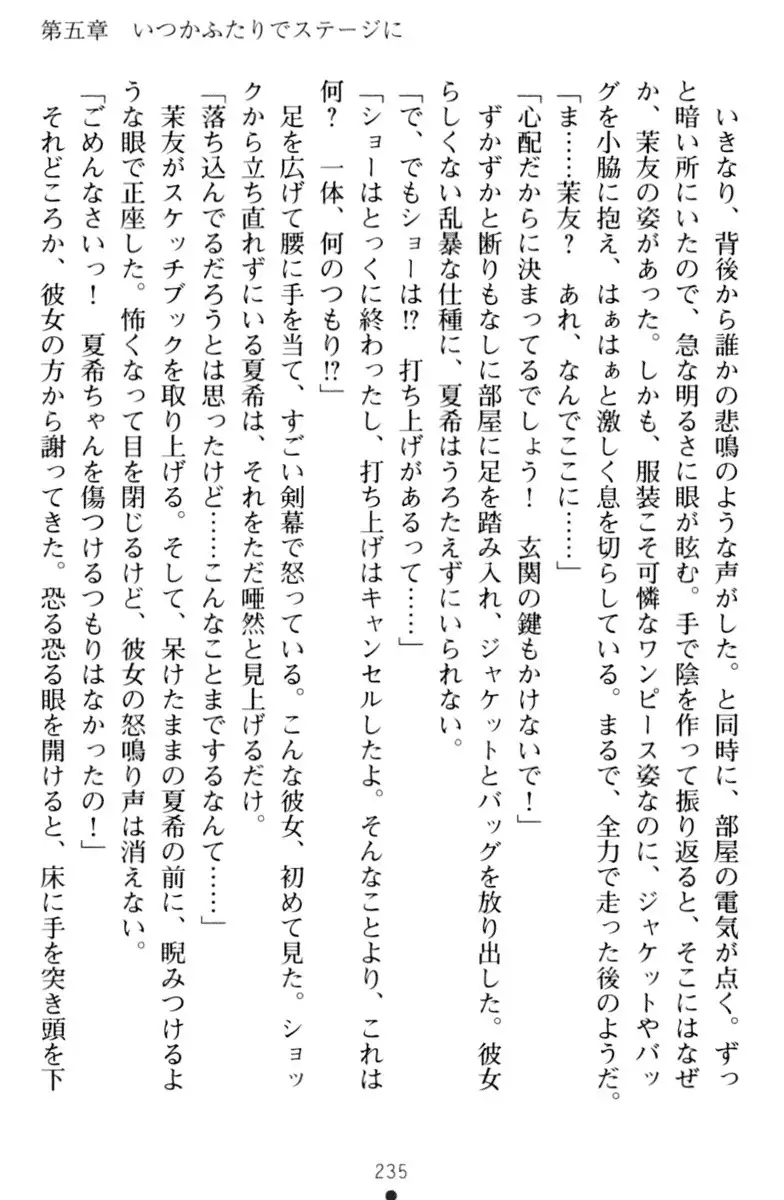 第五章　いつかふたりでステージに
いきなり、背後から誰かの悲鳴のような声がした。と同時に、部屋の電気が点く。ずっ
と暗い所にいたので、急な明るさに眼が眩む。手で陰を作って振り返ると、そこにはなぜ
か、茉友の姿があった。しかも、服装こそ可憐なワンピース姿なのに、ジャケットやバッ
グを小脇に抱え、はぁはぁと激しく息を切らしている。まるで、全力で走った後のようだ。
「ま……茉友？　あれ、なんでここに……」
「心配だからに決まってるでしょう！　玄関の鍵もかけないで！」
ずかずかと断りもなしに部屋に足を踏み入れ、ジャケットとバッグを放り出した。彼女
らしくない乱暴な仕種に、夏希はうろたえずにいられない。
「で、でもショーは!?　打ち上げがあるって……」
「ショーはとっくに終わったし、打ち上げはキャンセルしたよ。そんなことより、これは
何？　一体、何のつもり!?」
足を広げて腰に手を当て、すごい剣幕で怒っている。こんな彼女、初めて見た。ショッ
クから立ち直れずにいる夏希は、それをただ唖然と見上げるだけ。
「落ち込んでるだろうとは思ったけど……こんなことまでするなんて……」
茉友がスケッチブックを取り上げる。そして、呆けたままの夏希の前に、睨みつけるよ
うな眼で正座した。怖くなって目を閉じるけど、彼女の怒鳴り声は消えない。
「ごめんなさいっ！　夏希ちゃんを傷つけるつもりはなかったの！」
それどころか、彼女の方から謝ってきた。恐る恐る眼を開けると、床に手を突き頭を下
235